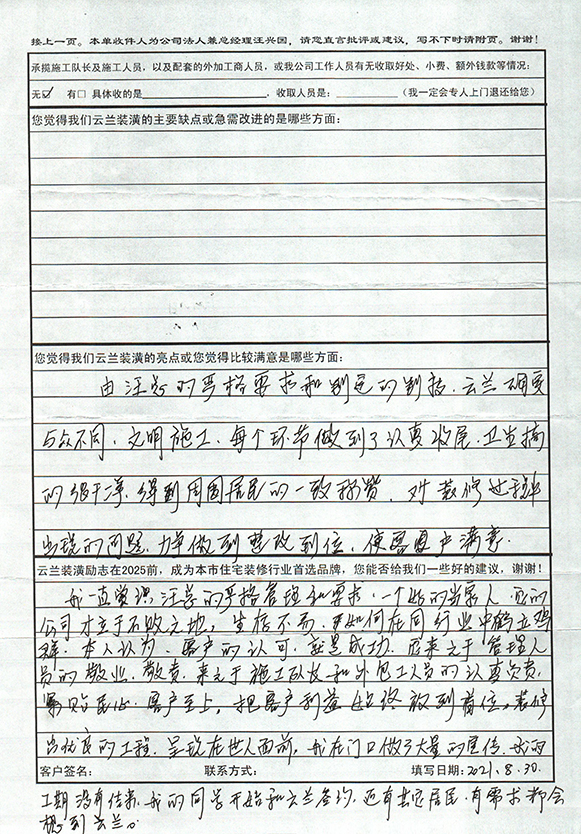 接上一页。本单收件人为公司法人兼总经理汪兴国，请您直言批评或建议，写不下时请附页。谢谢！
承揽施工队长及施工人员，以及配套的外加工商人员，或我公司工作人员有无收取好处、小费、额外钱款等情况：
无☑ 有□ 具体收的是 ，收取人员是： （我一定会专人上门退还给您）
您觉得我们云兰装潢的主要缺点或急需改进的是哪些方面：
您觉得我们云兰装潢的亮点或您觉得比较满意是哪些方面：
由汪总的严格要求和制定的制度，云兰确实
与众不同，文明施工，每个环节做到了认真收尾，卫生搞
的很干净，得到周围居民的一致称赞，对装修过程中
出现的问题，力争做到整改到位，使客户满意。
云兰装潢励志在2025前，成为本市住宅装修行业首选品牌，您能否给我们一些好的建议，谢谢！
我一直赏识汪总的严格管理和要求，一个好的当家人，您的
公司才立于不败之地，生存不易，更如何在同行业中鹤立鸡
群，本人认为，客户的认可，就是成功，应来之于管理人
员的敬业、敬责，来之于施工队长和外包工人员的认真负责，
紧贴民心，客户至上，把客户利益始终放到首位，装修
出优良的工程，呈现在世人面前，我在门口做了大量的宣传，我的
客户签名： 联系方式： 填写日期：2021.8.30.
工期没有结束，我的同学开始和云兰签约，还有其它居民，有需求都会
想到云兰。